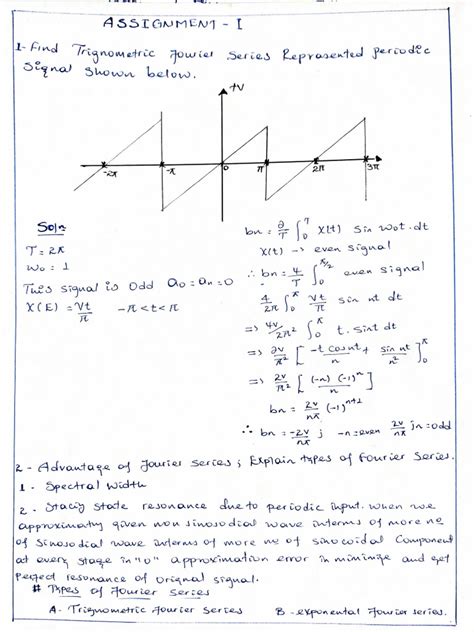 ASSIGNMENT - I
1- Find Trignometric Fouier Series Reprasented Periodic
Signal shown below.
+V
-2π -π 0 π 2π 3π
Soln
T = 2π
ω0 = 1
This signal is odd a0 = an = 0
X(E) = Vt/π -π<t<π
bn = 2/T ∫0^T X(t) sin ω0t . dt
X(t) -> even signal
∴ bn = 4/T ∫0^π/2 even signal
4/2π ∫0^π Vt/π sin nt dt
=> 4V/2π² ∫0^π t. sint dt
=> 2V/π² [ -t cosnt/n + sin nt/n² ]0^π
=> 2V/π² [ (-π) (-1)^n / n ]
bn = 2V/nπ (-1)^n+1
∴ bn = -2V/nπ ; -n=even 2V/nπ ; n=odd
2 - Advantage of Fourier Series ; Explain types of Fourier Series.
1 - Spectral Width
2 - State resonance due to periodic input. when we
approximatly given non sinosodial wave interms of more no
of Sinosodial wave interms of more no of sinocoidal Component
at every stage in "0" approximation error in minimize and get
Perfect resonance of orignal signal.
# Types of Fourier Series
A- Trignometric Fourier Series B - exponental Fourier series.